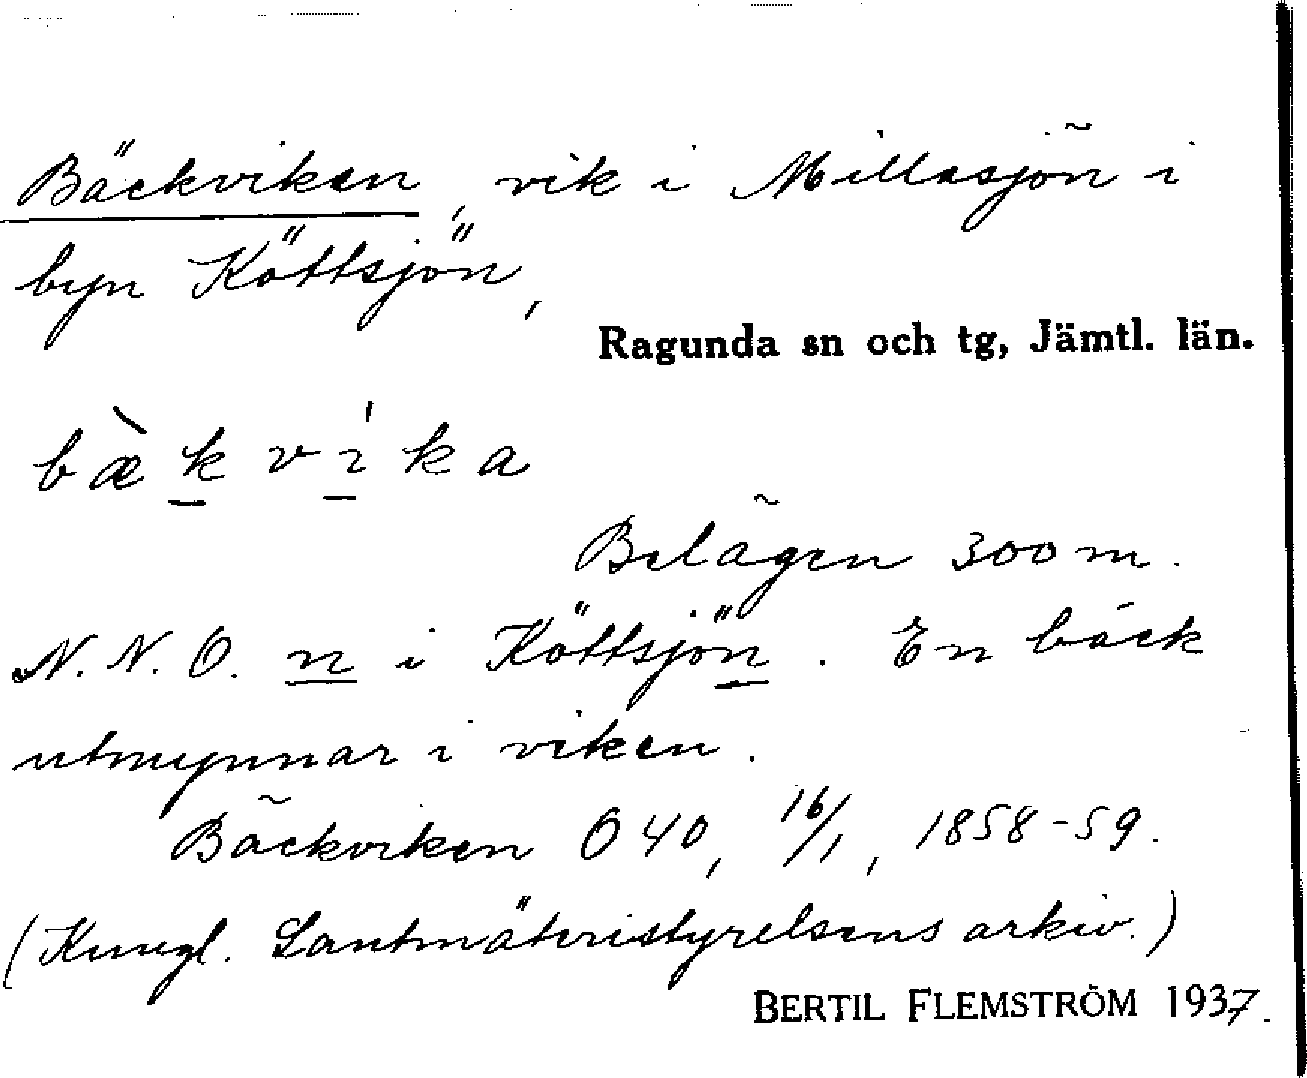 Bäckviken, vik i Millasjön i
byn Köttsjön,
Ragunda sn och tg, Jämtl. län.
bæ̀kvi̍ka
Belägen 300 m.
N. N. O. n i Köttsjön. En bäck
utmynnar i viken.
Bäckviken O 40, 16/1, 1858-59.
(Kungl. Lantmäteristyrelsens arkiv.)
BERTIL FLEMSTRÖM 1937.